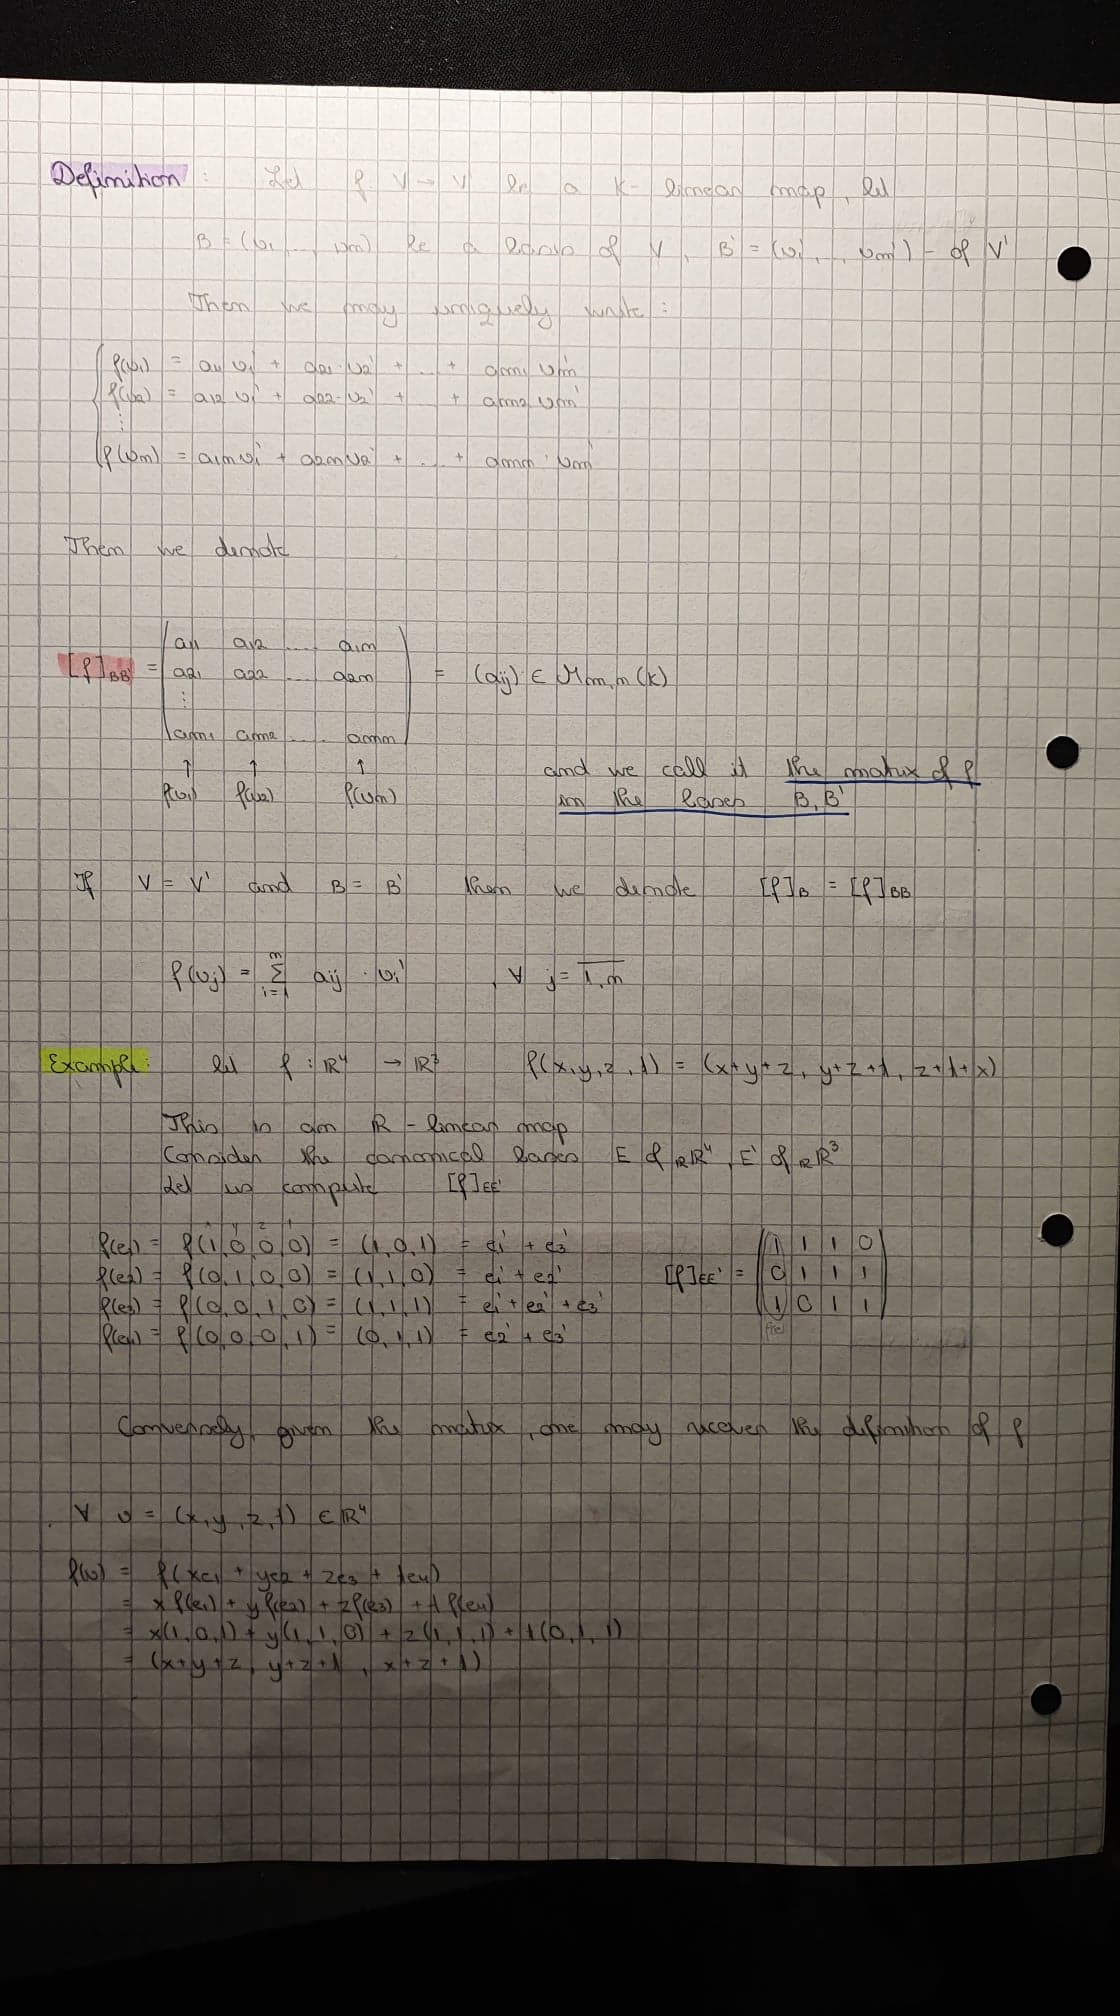 Definition : Let f V → V be a K- linear map, let
B = (v1 ..., vn) be a basis of V, B' = (v1', ., vm') - of V'
Then we may uniquely write :
f(v1) = a11 v1' + a21·v2' + ... + am1 vm'
f(v2) = a12 v1' + a22·v2' + ... + am2 vm'
⋮
f(vn) = a1n v1' + a2n v2' + ... + amn · vm'
Then we denote
[f]BB' = (a11 a12 .... a1n
a21 a22 .... a2n = (aij) ∈ Mm,n (K)
⋮
am1 am2 .... amn)
↑ ↑ ↑ and we call it the matrix of f
f(v1) f(v2) f(vn) in the bases B, B'
If V = V' and B = B' then we denote [f]B = [f]BB
f(vj) = m Σ i=1 aij · vi' , ∀ j = 1,n
Example: let f : ℝ⁴ → ℝ³ f(x,y,z,t) = (x+y+z, y+z+t, z+t+x)
This is an R - linear map
Consider the canonical bases E of ℝℝ⁴, E' of ℝℝ³
Let us compute [f]EE'
f(e1) = f(1,0,0,0) = (1,0,1) = e1' + e3'
f(e2) = f(0,1,0,0) = (1,1,0) = e1' + e2'
f(e3) = f(0,0,1,0) = (1,1,1) = e1' + e2' + e3'
f(e4) = f(0,0,0,1) = (0,1,1) = e2' + e3'
[f]EE' = (1 1 1 0
0 1 1 1
1 0 1 1)
Conversely, given the matrix, one may recover the definition of f
∀ v = (x,y,z,t) ∈ ℝ⁴
f(v) = f(xe1 + ye2 + ze3 + te4)
= x f(e1) + y f(e2) + z f(e3) + t f(e4)
= x(1,0,1) + y(1,1,0) + z(1,1,1) + t(0,1,1)
= (x+y+z, y+z+t, x+z+t)